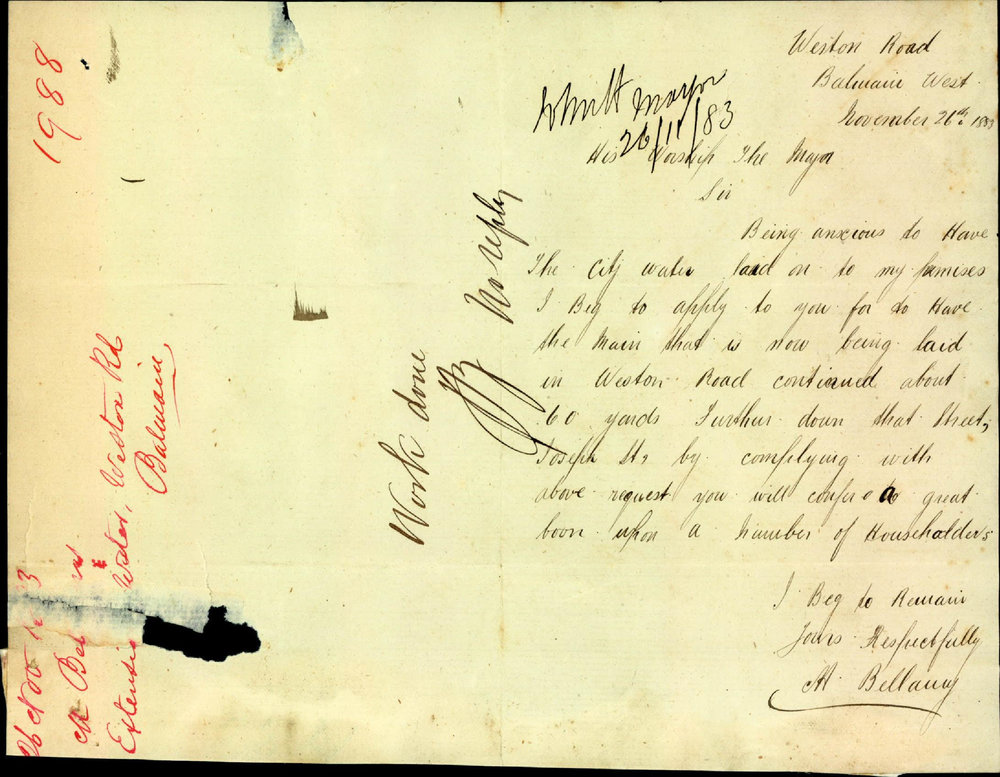 Weston Road
Balmain West
November 26th 1883
Mayor
26/11/83
His Worship The Mayor
Sir
Being anxious to Have
The City water laid on to my premises
I Beg to apply to you for to Have
the Main that is now being laid
in Weston Road continued about
60 yards Further down that Street,
Joseph St, by complying with
above request you will confer a great
boon upon a Number of Householders
I Beg to Remain
Yours Respectfully
M Bellamy
Work done
No reply
1988
26 Nov 83
M Bel
Extensio Water, Weston Rd
Balmain